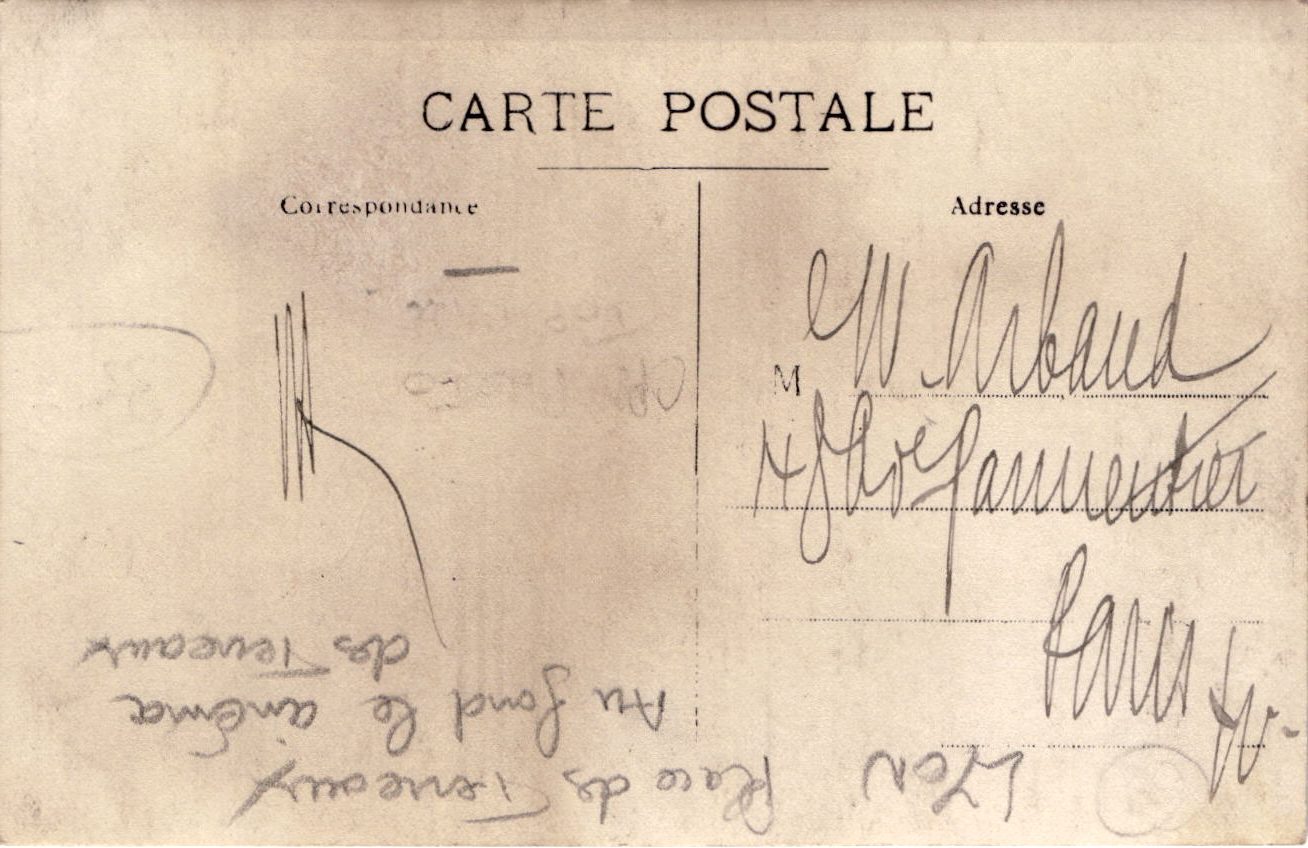 CARTE POSTALE
Correspondance
Adresse
M
M. Arbaud
48 Ave Parmentier
Paris
LYON Place des Terreaux
Au fond le cinéma
des Terreaux